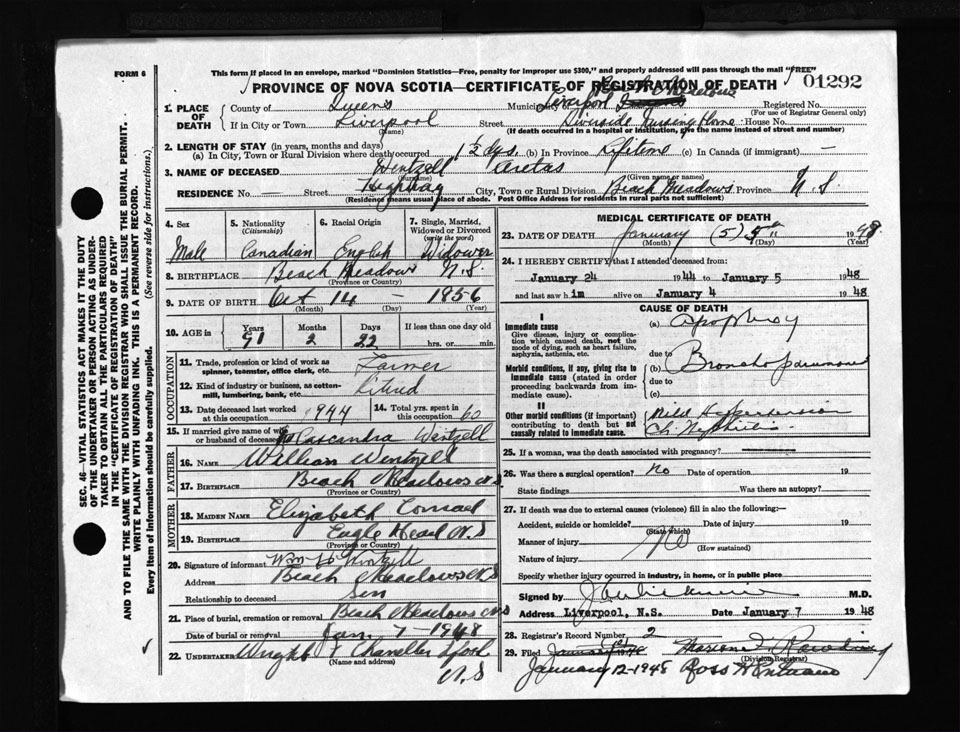 FORM 6
This form if placed in an envelope, marked "Dominion Statistics—Free, penalty for improper use $300," and properly addressed will pass through the mail "FREE"
PROVINCE OF NOVA SCOTIA—CERTIFICATE OF REGISTRATION OF DEATH
01292
1. PLACE OF DEATH
County of Queens Municipality Liverpool Registered No.
(For use of Registrar General only)
If in City or Town Liverpool Street Riverside Nursing Home House No.
(Name) (If death occurred in a hospital or institution, give the name instead of street and number)
2. LENGTH OF STAY (in years, months and days)
(a) In City, Town or Rural Division where death occurred 12 dys. (b) In Province Lifetime (c) In Canada (if immigrant) —
3. NAME OF DECEASED Wentzell Aretas
(Surname) (Given name or names)
RESIDENCE No. — Street Highway City, Town or Rural Division Beach Meadows Province N.S.
(Residence means usual place of abode. Post Office Address for residents in rural parts not sufficient)
4. Sex 5. Nationality (Citizenship) 6. Racial Origin 7. Single, Married, Widowed or Divorced (write the word)
Male Canadian English Widower
8. BIRTHPLACE Beach Meadows N.S.
(Province or Country)
9. DATE OF BIRTH Oct 14 — 1856
(Month) (Day) (Year)
10. AGE in Years Months Days If less than one day old
91 2 22 hrs. or min.
OCCUPATION
11. Trade, profession or kind of work as spinner, teamster, office clerk, etc. Farmer
12. Kind of industry or business, as cotton-mill, lumbering, bank, etc. retired
13. Date deceased last worked at this occupation 1944 14. Total yrs. spent in this occupation 60
15. If married give name of wife or husband of deceased Cassandra Wentzell
FATHER
16. NAME William Wentzell
17. BIRTHPLACE Beach Meadows N.S.
(Province or Country)
MOTHER
18. MAIDEN NAME Elizabeth Conrad
19. BIRTHPLACE Eagle Head N.S
(Province or Country)
20. Signature of informant Wm H Wentzell
Address Beach Meadows N.S
Relationship to deceased Son
21. Place of burial, cremation or removal Beach Meadows N.S
Date of burial or removal Jan 7 - 1948
22. UNDERTAKER Wright & Chandler Lpool
(Name and address) N.S
MEDICAL CERTIFICATE OF DEATH
23. DATE OF DEATH January (5) 5th 1948
(Month) (Day) (Year)
24. I HEREBY CERTIFY that I attended deceased from:
January 24 1944 to January 5 1948
and last saw him alive on January 4 1948
CAUSE OF DEATH
I
Immediate cause
Give disease, injury or complication which caused death, not the mode of dying, such as heart failure, asphyxia, asthenia, etc.
(a) Apoplexy
due to
Morbid conditions, if any, giving rise to immediate cause (stated in order proceeding backwards from immediate cause).
(b) Broncho pneumonia
due to
(c)
II
Other morbid conditions (if important) contributing to death but not causally related to immediate cause.
Mild Hypertension
Ch. Nephritis
25. If a woman, was the death associated with pregnancy?
26. Was there a surgical operation? no Date of operation 19
State findings Was there an autopsy?
27. If death was due to external causes (violence) fill in also the following:—
Accident, suicide or homicide? Date of injury 19
(State which)
Manner of injury no
(How sustained)
Nature of injury
Specify whether injury occurred in industry, in home, or in public place
Signed by M.D.
Address Liverpool, N.S. Date January 7 1948
28. Registrar's Record Number 2
29. Filed
(Division Registrar)
January 12-1948 Ross
SEC. 46—VITAL STATISTICS ACT MAKES IT THE DUTY
OF THE UNDERTAKER OR PERSON ACTING AS UNDER-
TAKER TO OBTAIN ALL THE PARTICULARS REQUIRED
IN THE "CERTIFICATE OF REGISTRATION OF DEATH"
AND TO FILE THE SAME WITH THE DIVISION REGISTRAR WHO SHALL ISSUE THE BURIAL PERMIT.
WRITE PLAINLY WITH UNFADING INK. THIS IS A PERMANENT RECORD.
Every item of information should be carefully supplied. (See reverse side for instructions.)